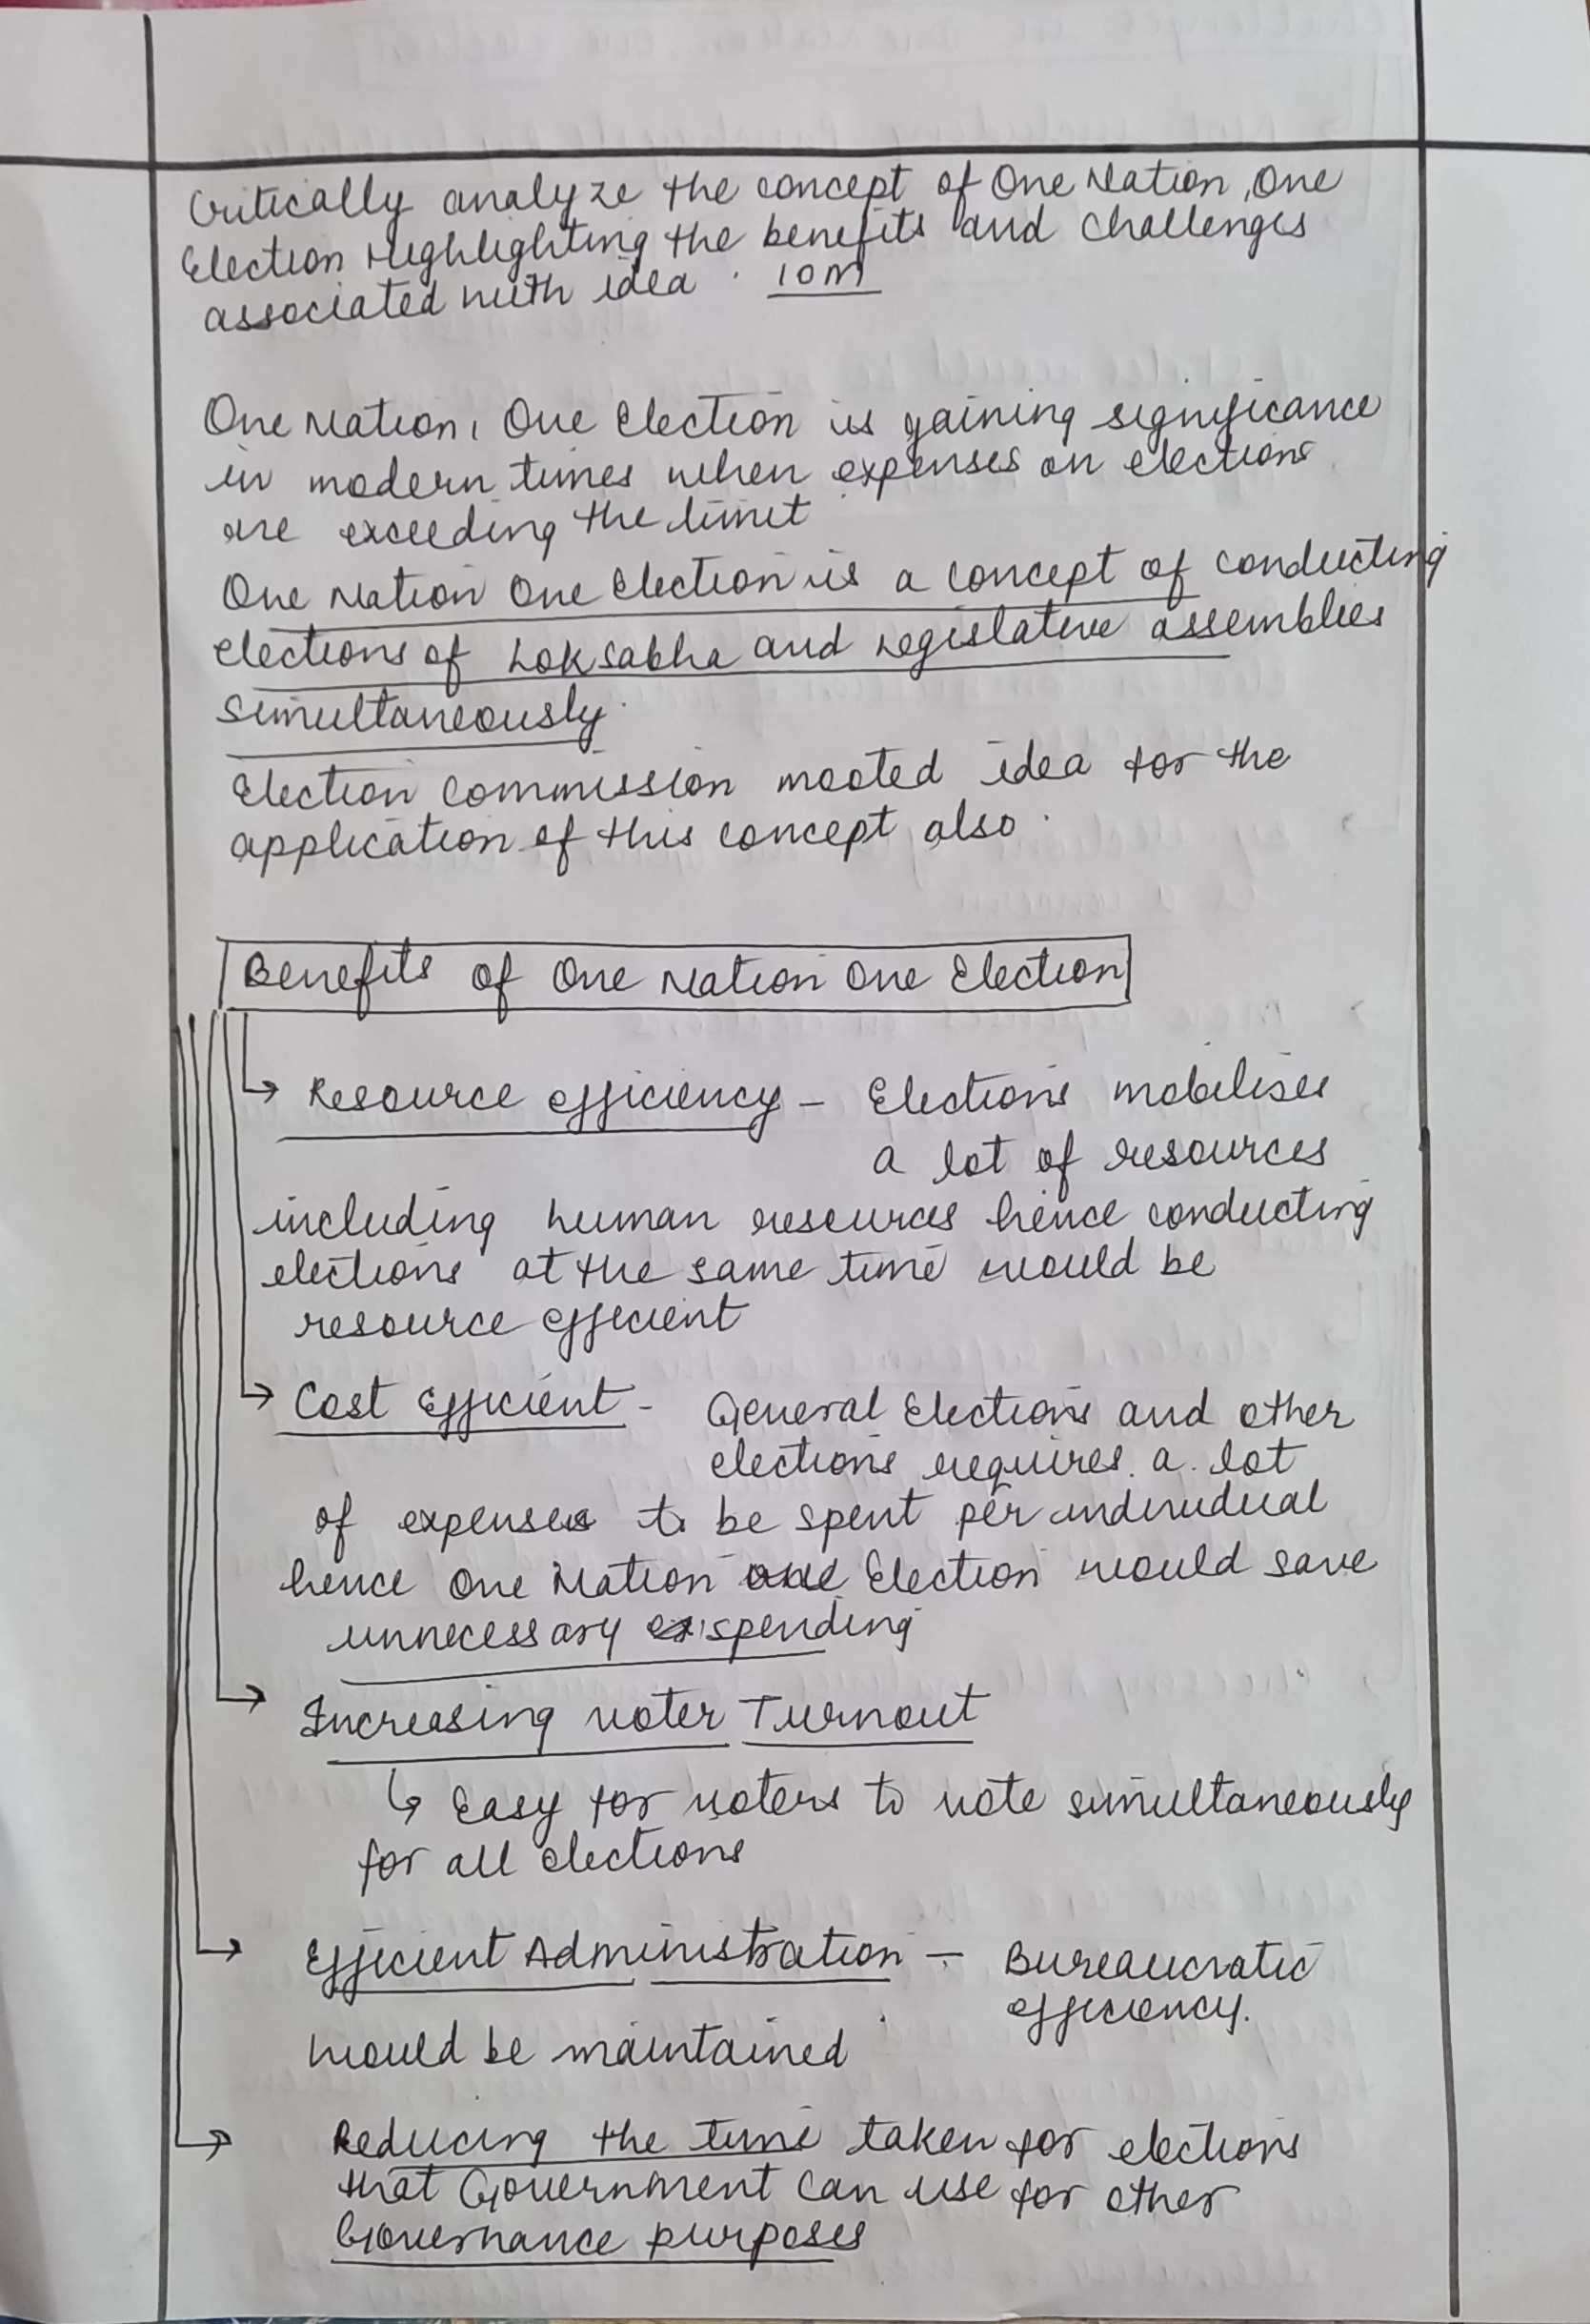 Critically analyze the concept of One Nation, One
Election Highlighting the benefits and challenges
associated with idea . 10m
One Nation, One Election is gaining significance
in modern times when expenses on elections
are exceeding the limit
One Nation One Election is a concept of conducting
elections of Loksabha and Legislative assemblies
simultaneously.
Election Commission mooted idea for the
application of this concept also.
Benefits of One Nation One Election
→ Resource efficiency – Elections mobilises
a lot of resources
including human resources hence conducting
elections at the same time would be
resource efficient
→ Cost Efficient - General Elections and other
elections requires a lot
of expenses to be spent per individual
hence One Nation One Election would save
unnecessary spending
→ Increasing Voter Turnout
↳ Easy for voters to vote simultaneously
for all elections
→ Efficient Administration – Bureaucratic
efficiency.
would be maintained
→ Reducing the time taken for elections
that Government can use for other
Governance purposes